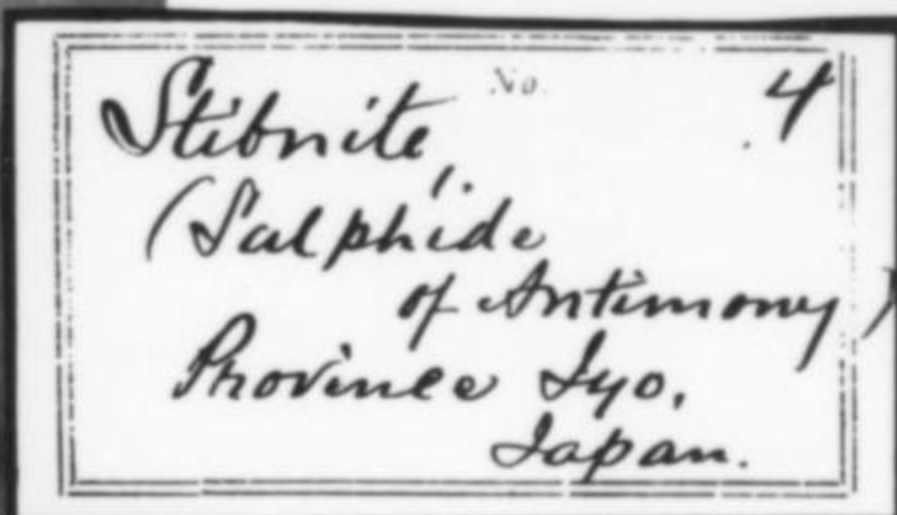 No. 4
Stibnite,
(Sulphide
of Antimony)
Province Iyo,
Japan.